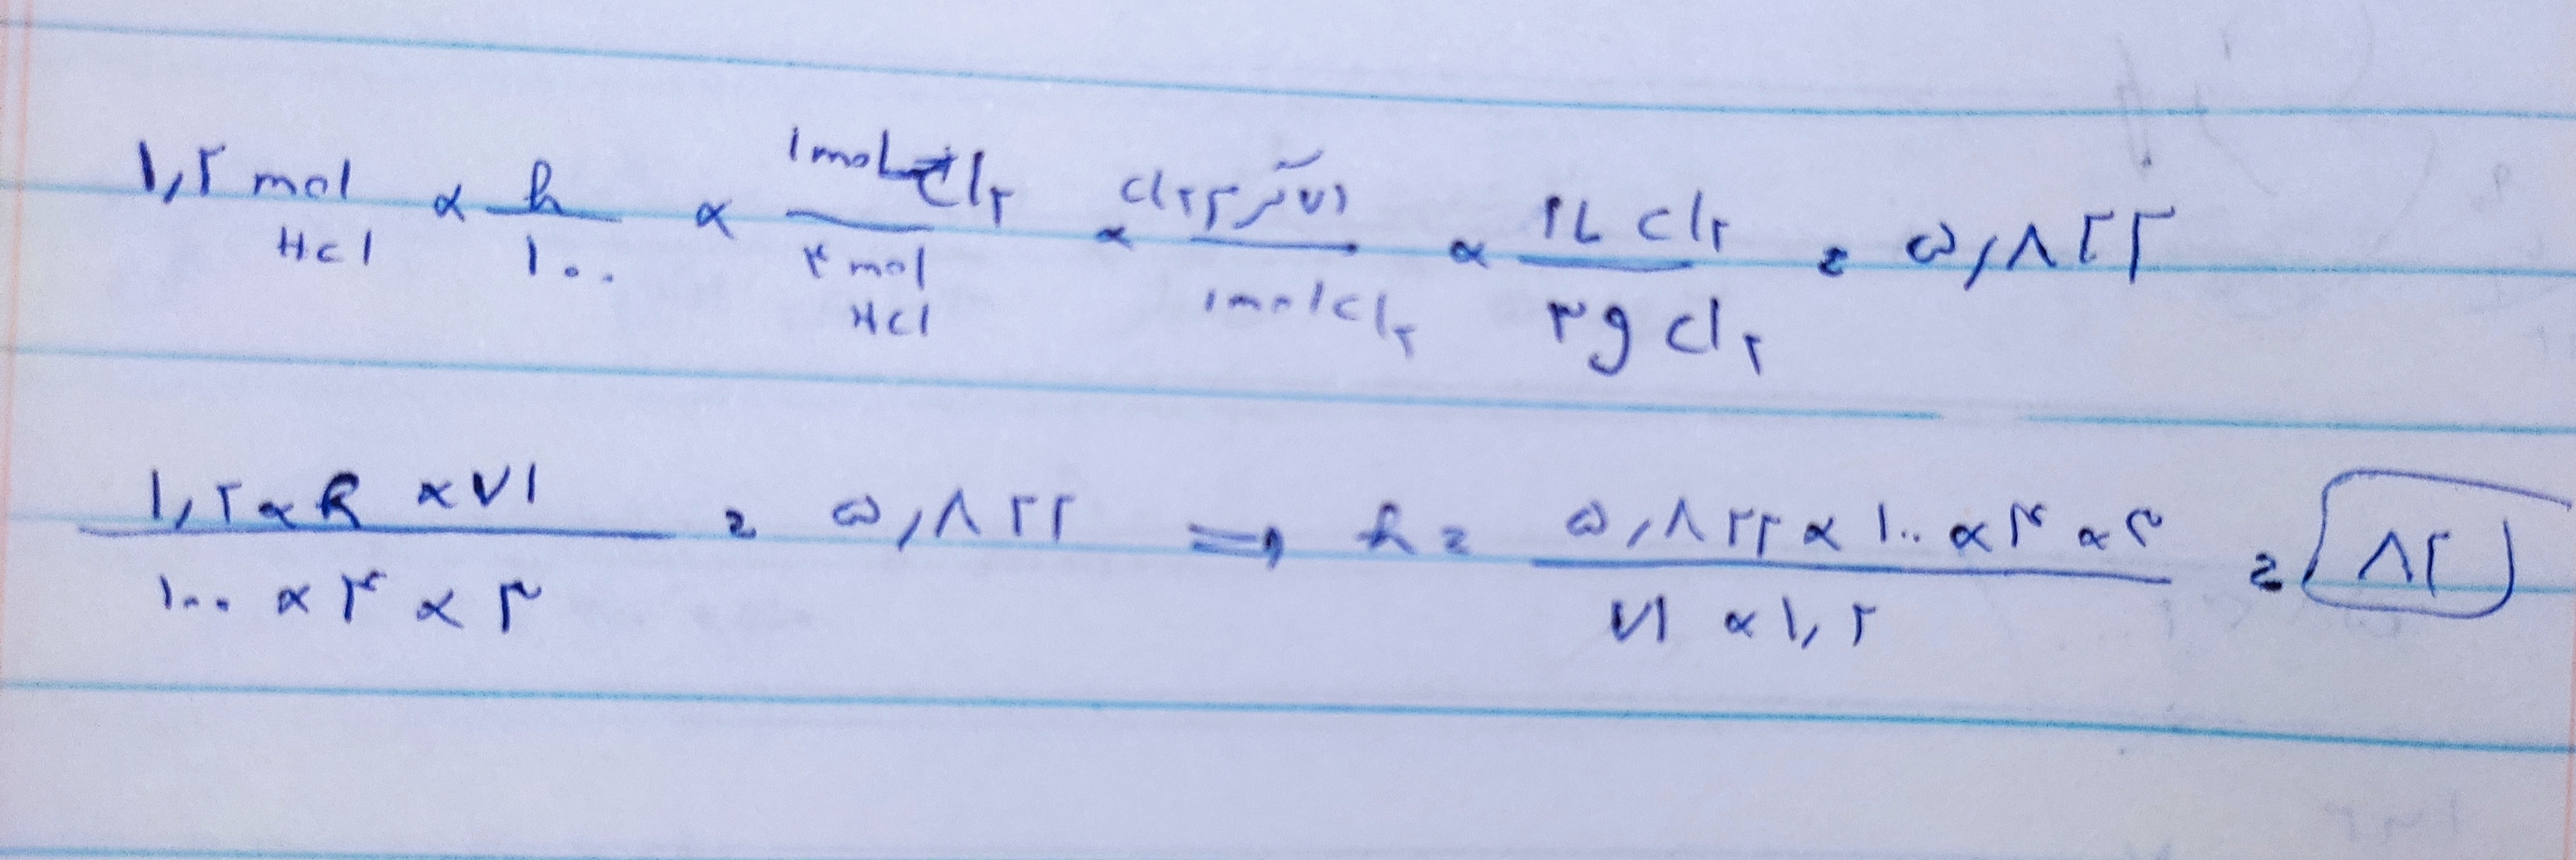 ۱,۲ mol HCl × R/۱۰۰ × ۱mol Cl۲/۴ mol HCl × ۷۱ گرم Cl۲/۱mol Cl۲ × ۱L Cl۲/۳g Cl۲ = ۵,۸۲۲
۱,۲ × R × ۷۱/۱۰۰ × ۴ × ۳ = ۵,۸۲۲ ⇒ R = ۵,۸۲۲ × ۱۰۰ × ۴ × ۳/۷۱ × ۱,۲ = ۸۲